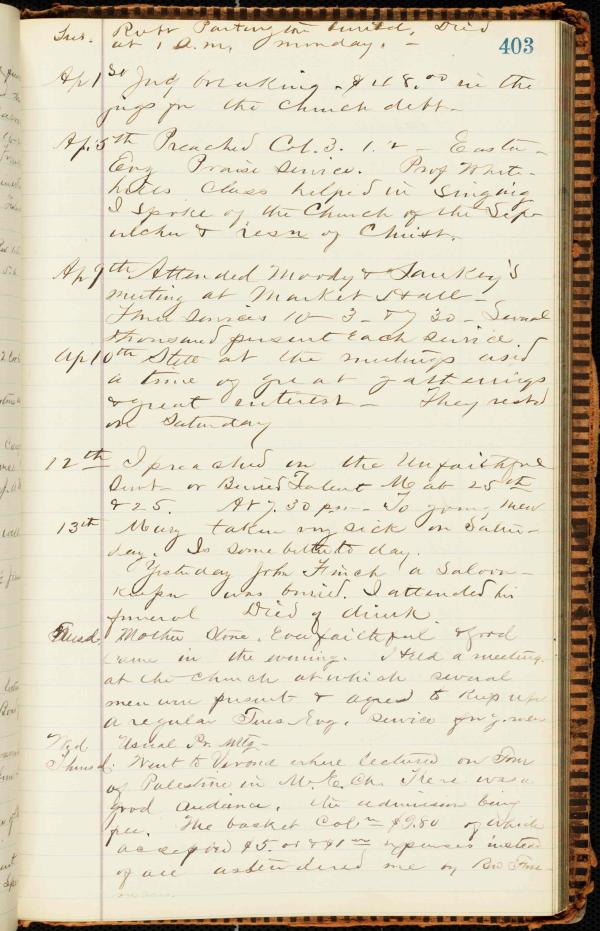 403
Tues. Robt Partington buried, Died
at 1 a.m, Monday. -
Ap 1st Jug breaking. $48.00 in the
jugs for the church debt -
Ap. 5th Preached Col. 3. 1. 2 - Easter
Evg Praise Service. Prof White-
class helped in singing
I spoke of the Church of the Sep-
ulcher & resn of Christ.
Ap 9th Attended Moody & Sankey's
meeting at Market Hall -
Three services 10 - 3 - & 7 30 - Several
thousand present each service.
Ap 10th Still at the meetings
a time of great gatherings
& great interest - They rested
on Saturday
12th I preached on the Unfaithful
Servt or Buried Talent M at 25th
& 25. At 7.30 pm - To young men
13th Mary taken very sick on Satur-
day. Is some better to day.
Yesterday John Finch a Saloon-
keeper was buried. I attended his
funeral Died of drink
Tuesd. Mother Stone. Ever faithful & good
came in the evening. I Held a meeting
at the church at which several
men were present & agreed to keep up
a regular Tues. Evg. service for y. men
Wed Usual Pr. Mtg -
Thursd. Went to Verona where lectured on Tour
of Palestine in M. E. Ch. There was a
good audience, the admission being
free. The basket Coln $9.80 of which
accepted $5. or & $1 expenses instead
of all as tendered me by Bro